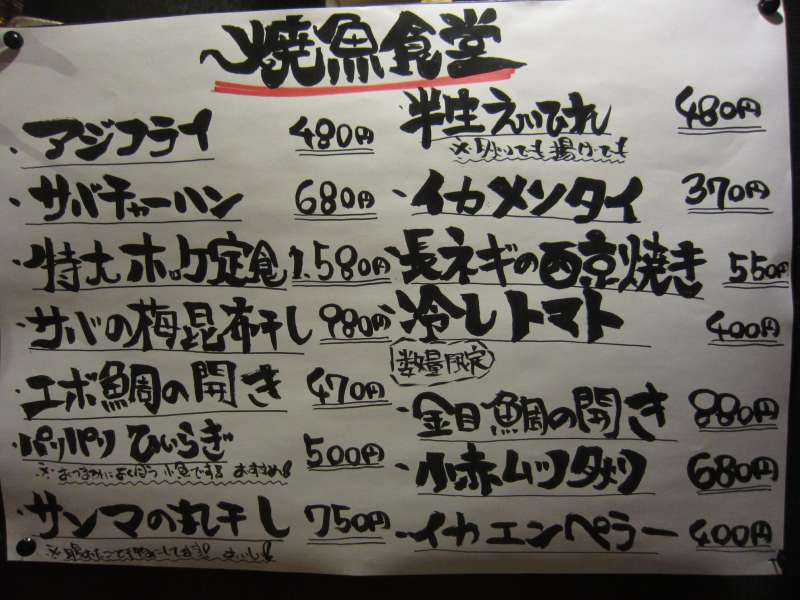 〜焼魚食堂
アジフライ 480円
サバチャーハン 680円
特大ホッケ定食 1.580円
サバの梅昆布干し 980円
エボ鯛の開き 470円
パリパリひいらぎ 500円
※おつまみによく合う小魚です!! おすすめ!
サンマの丸干し 750円
半生えいひれ 480円
※炙りでも揚げでも
イカメンタイ 370円
長ネギの西京焼き 550円
冷しトマト 400円
数量限定
金目鯛の開き 880円
小赤ムツ夕干し 680円
イカエンペラー 400円